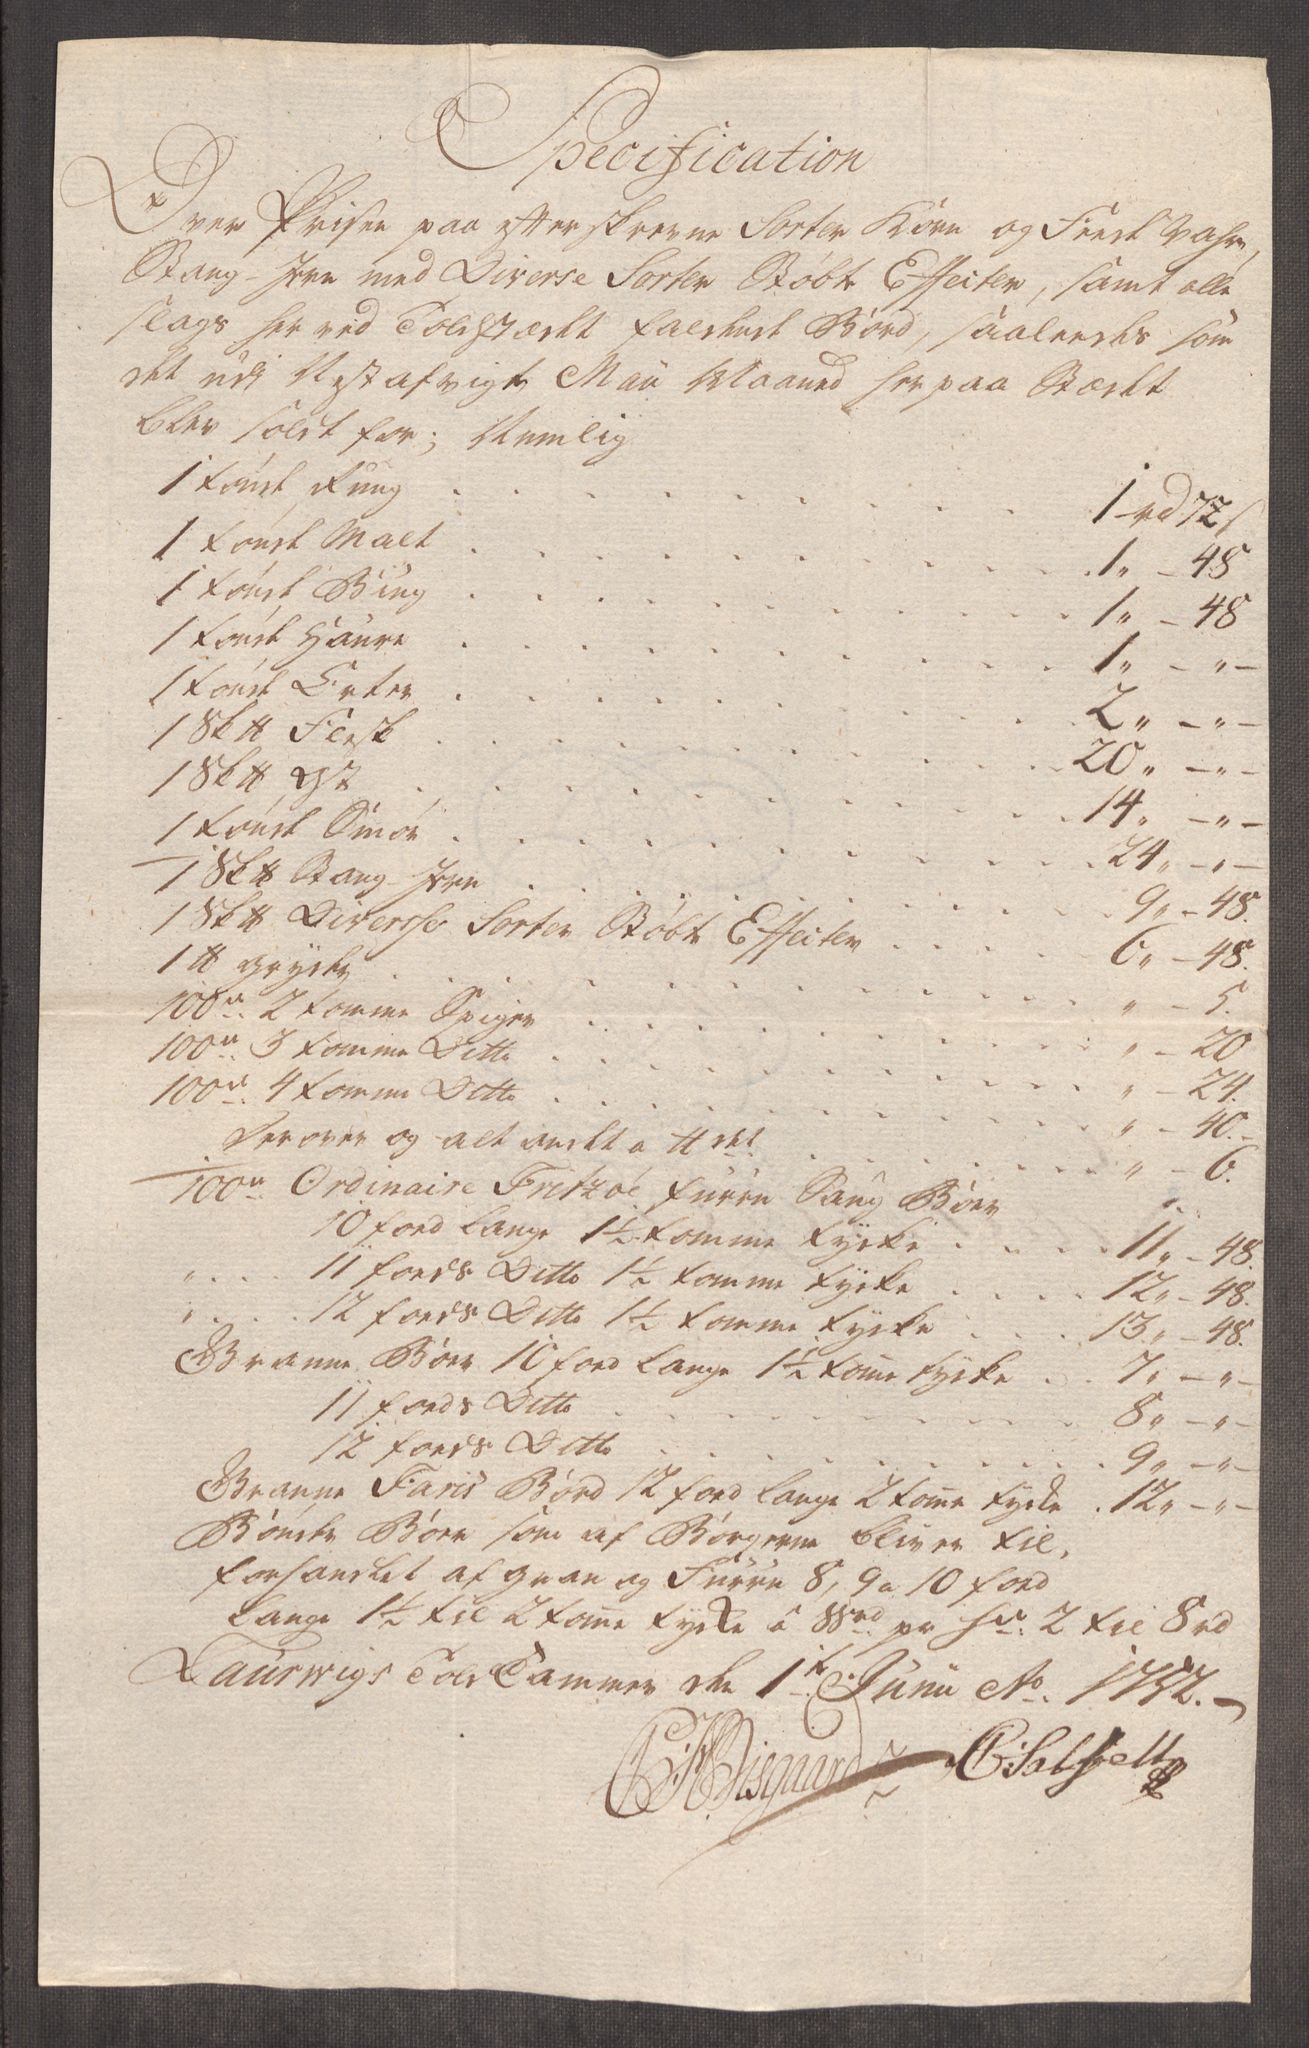 Specification
Over Prisen paa efterskrevne Sorter Korn og Feed Vahre,
Stang-Jern med Diverse Sorter Støbte Effecter, samt alle
slags her ved Toldstædet faldende Bord, saaledes som
det udi Nestafvigte Maii Maaned her paa Stædet
blev soldt for; Nemlig
1 tønde Rug . . . 1 rd 72 s
1 tønde Malt . . . 1 „ – 48
1 tønde Biug . . . 1 „ – 48
1 tønde Haure . . . 1 „ – „ –
1 tønde Erter . . . 2 „ – „ –
1 Sk℔ Flesk . . . 20 „ – „ –
1 Sk℔ Ost . . . 14 „ – „ –
1 tønde Smør . . . 24 „ – „ –
1 Sk℔ Stang-Jern . . . 9 „ – 48.
1 Sk℔ Diversse Sorter Støbte Effecter . . . 6 „ – 48.
1 ℔ gryder . . . „ – 5.
100de 2 tomme Spiger . . . „ – 20
100de 3 tomme Ditto . . . „ – 24.
100de 4 tomme Ditto . . . „ – 40. –
Derover og alt andet a ℔ det . . . „ – 6.
100de Ordinaire Fritzøe furru Saug Bord
10 fod lange 1½ tomme tycke . . . 11 „ – 48.
„ . . . 11 fods Ditto 1½ tomme tycke . . . 12 „ – 48.
„ . . . 12 fods Ditto 1½ tomme tycke . . . 13 „ – 48.
Granne Bord 10 fod lange 1½ tome tycke . . . 7 „ – „ –
11 fods Ditto . . . 8 „ – „ –
12 fods Ditto . . . 9 „ – „ –
Granne Faris Bord 12 fod lange 2 tome tycke . 12 „ – „ –
Bønder Bord som af Borgerne bliver til,
forhandlet af gran og Furru 8, 9 a 10 fod
lange 1½ til 2 tome tycke á pr 2 til 8 rd
Laurwigs Told Cammer den 1te Junii Ao. 1752. –
Bisgaard